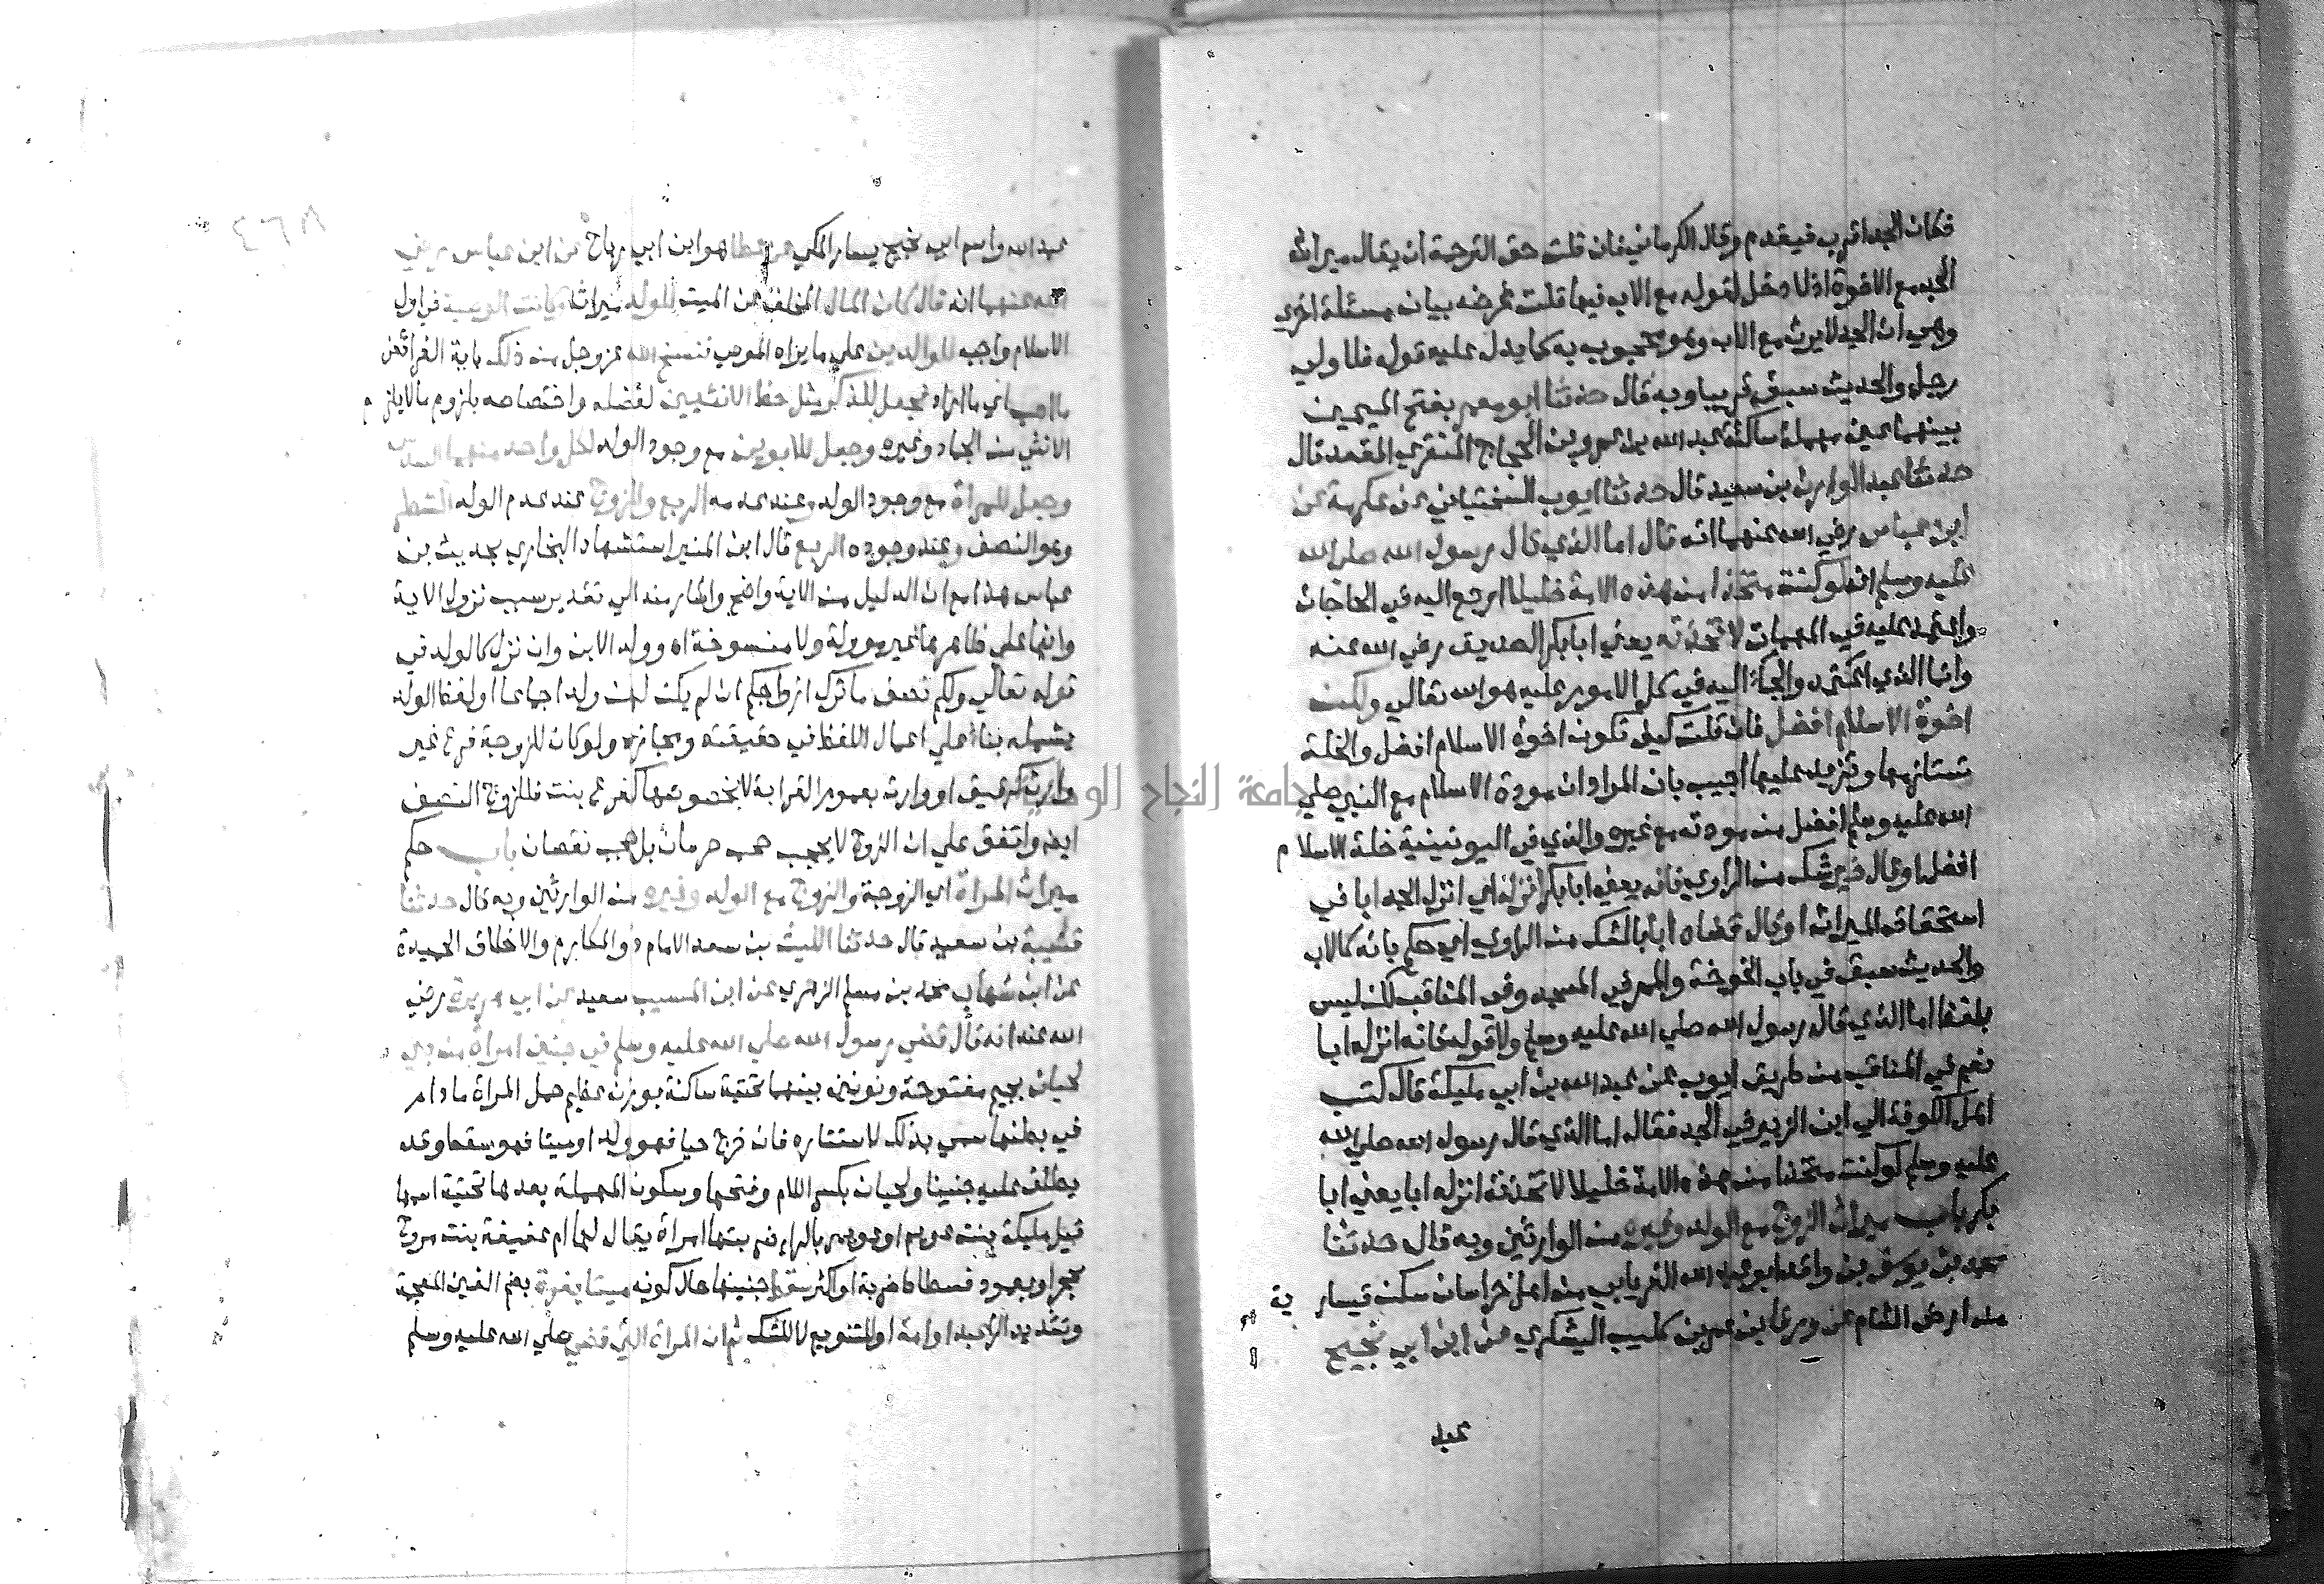 فكان الجد اقرب فيقدم وقال الكرماني فان قلت حق الترجمة ان يقال ميراث
الجد مع الاخوة اذ لا دخل لقوله مع الاب فيها قلت غرضه بيان مسئلة اخري
وهي ان الجد لا يرث مع الاب وهو محجوب به كما يدل عليه قوله فلاولي
رجل والحديث سبق قريبا وبه قال حدثنا ابو معمر بفتح الميمين
بينهما عين مهملة ساكنة عبد الله بن عمرو بن الحجاج المنقري المقعد قال
حدثنا عبد الوارث بن سعيد قال حدثنا ايوب السختياني عن عكرمة عن
ابن عباس رضي الله عنهما انه قال اما الذي قال رسول الله صلي الله
عليه وسلم لو كنت متخذا من هذه الامة خليلا ارجع اليه في الحاجات
واعتمد عليه في المهمات لاتخذته يعني ابا بكر الصديق رضي الله عنه
وانما الذي والجأ اليه في كل الامور عليه هو الله تعالي ولكن
اخوة الاسلام افضل فان قلت كيف تكون اخوة الاسلام افضل والخلة
تستلزمها وتزيد عليها اجيب بان المراد ان مودة الاسلام مع النبي صلي
الله عليه وسلم افضل من مودته مع غيره والذي في اليونينية خلة الاسلام
افضل او قال خير شك من الراوي فانه يعني ابا بكر انزله اي انزل الجد ابا في
استحقاق الميراث او قال قضاه ابا بالشك من الراوي اي حكم بانه كالاب
والحديث سبق في باب الخوخة والممر في المسجد وفي المناقب لكن ليس
بلفظ اما الذي قال رسول الله صلي الله عليه وسلم ولا قوله فانه انزله ابا
نعم في المناقب من طريق ايوب عن عبد الله بن ابي مليكة قال كتب
اهل الكوفة الي ابن الزبير في الجد فقال اما الذي قال رسول الله صلي الله
عليه وسلم لو كنت متخذا من هذه الامة خليلا لاتخذته انزله ابا يعني ابا
بكر باب ميراث الزوج مع الولد وغيره من الوارثين وبه قال حدثنا
محمد بن يوسف بن واقد ابو عبد الله الفريابي من اهل خراسان سكن قيسارية
من ارض الشام عن ورقا بن عمر بن كليب اليشكري عن ابن ابي نجيح
عبد
عبد الله واسم ابي نجيح يسار المكي عن عطا هو ابن ابي رباح عن ابن عباس رضي
الله عنهما انه قال كان المال المخلف عن الميت للولد ميراثا وكانت الوصية في اول
الاسلام واجبه للوالدين علي ما يراه الموصي فنسخ الله عز وجل من ذلك باية الفرائض
ما احب اي ما اراد فجعل للذكر مثل حظ الانثيين لفضله واختصاصه بلزوم ما لا يلزم
الانثي من الجهاد وغيره وجعل للابوين مع وجود الولد لكل واحد منهما السدس
وجعل للمراة مع وجود الولد وعند عدمه الربع وللزوج عند عدم الولد الشطر
وهو النصف وعند وجوده الربع قال ابن المنير استشهاد البخاري بحديث بن
عباس هذا مع ان الدليل من الاية واضح اشارة منه الي تقدير سبب نزول الاية
وانها علي ظاهرها غير موولة ولا منسوخة اه وولد الابن وان نزل كالولد في
قوله تعالي ولكم نصف ما ترك ازواجكم ان لم يكن لهن ولد اجماعا او لفظ الولد
يشمله بناء علي اعمال اللفظ في حقيقته ومجازه ولو كان للزوجة فرع غير
وارث كرقيق او وارث بعموم القرابة لا بخصوصها كفرع بنت فللزوج النصف
ايضا واتفق علي ان الزوج لا يحجب حجب حرمان بل حجب نقصان باب حكم
ميراث المراة اي الزوجة والزوج مع الولد وغيره من الوارثين وبه قال حدثنا
قتيبة بن سعيد قال حدثنا الليث بن سعد الامام ذو المكارم والاخلاق الحميدة
عن ابن شهاب محمد بن مسلم الزهري عن ابن المسيب سعيد عن ابي هريرة رضي
الله عنه انه قال قضي رسول الله صلي الله عليه وسلم في جنين امراة من بني
لحيان بجيم مفتوحة ونونين بينهما تحتية ساكنة بوزن عظيم حمل المراة ما دام
في بطنها سمي بذلك لاستتاره فان خرج حيا فهو ولد او ميتا فهو سقط وقد
يطلق عليه جنينا ولحيان بكسر اللام وفتحها وسكون المهملة بعدها تحتية اسمها
قيل مليكة بنت عويم او عويمر بالراء ضربتها امراة يقال لها ام عفيفة بنت مروح
بحجر او بعمود فسطاط ضربة او اكثر سقط جنينها حال كونه ميتا بغرة بضم الغين المعجمة
وتشديد الراء عبد او امة او للتنويع لا للشك ثم ان المراة التي قضي صلي الله عليه وسلم
جامعة النجاح الوطنية